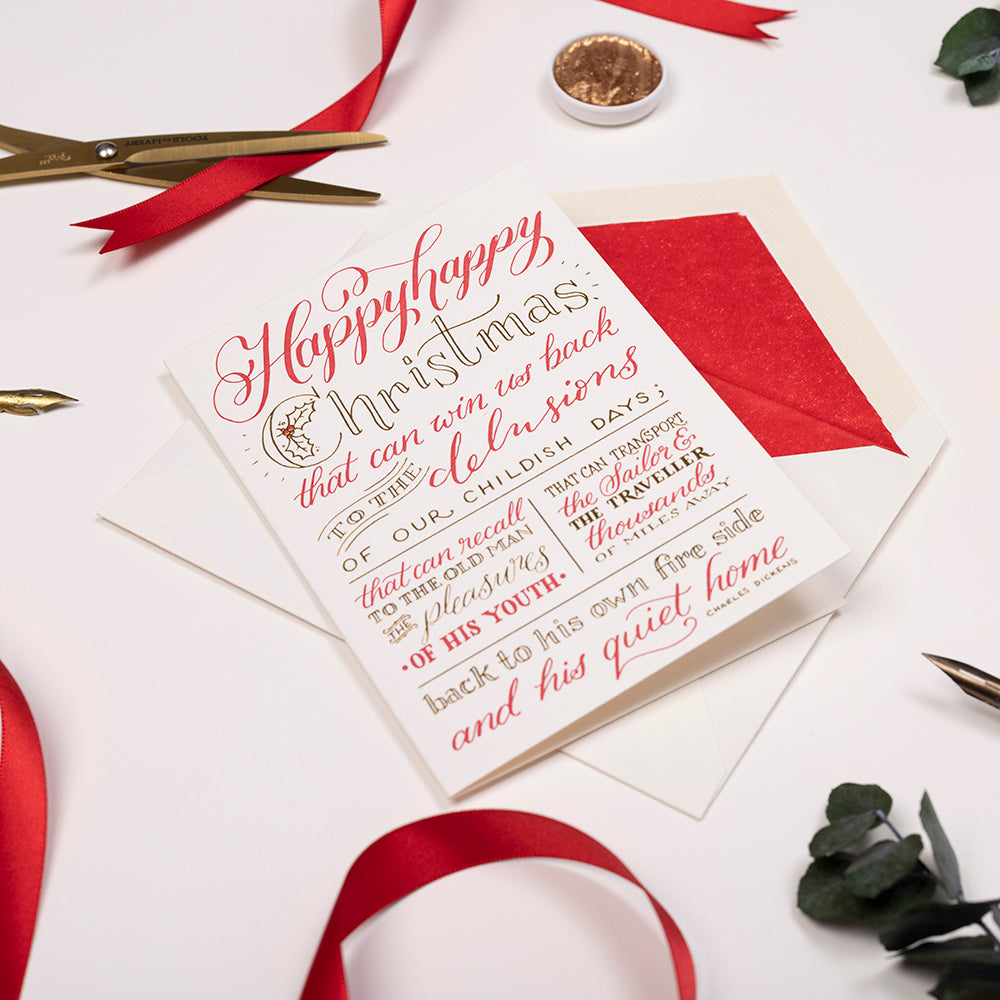 TOOLS to LIVERY
Happy happy
Christmas
that can win us back
TO THE delusions
OF OUR CHILDISH DAYS;
that can recall
TO THE OLD MAN
THE pleasures
•OF HIS YOUTH•
THAT CAN TRANSPORT
the Sailor &
THE TRAVELLER
thousands
OF MILES AWAY
back to his own fire side
and his quiet home
CHARLES DICKENS